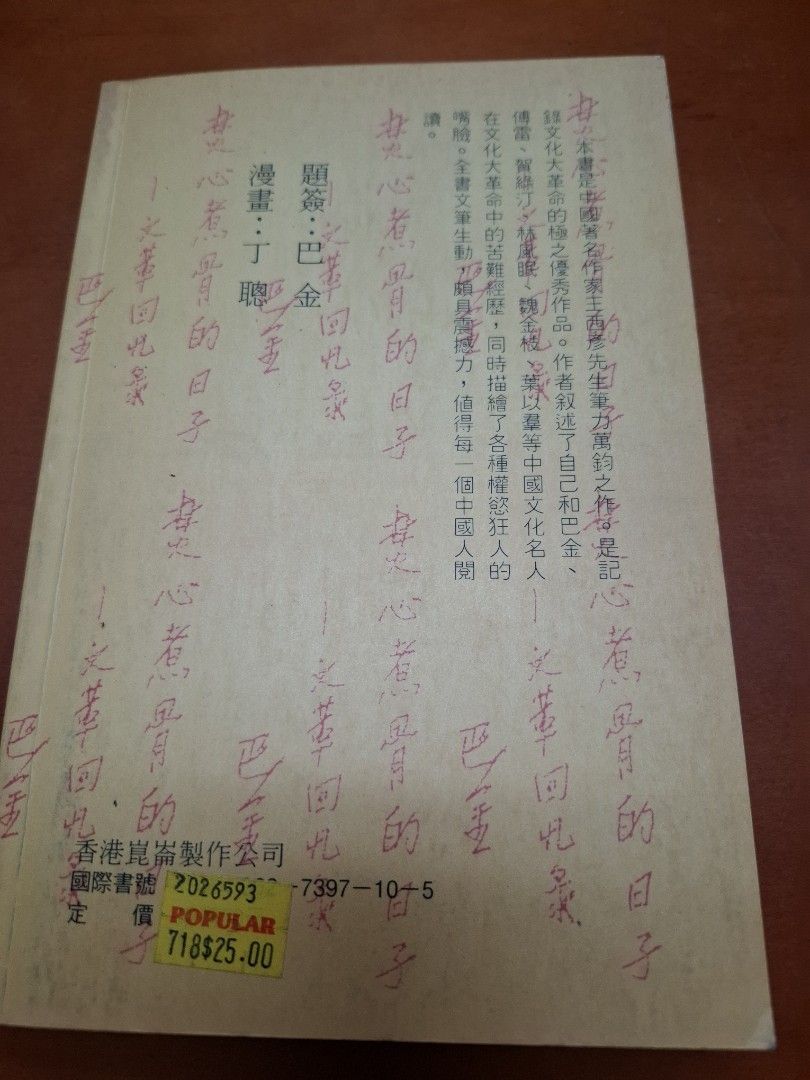 本書是中國著名作家王西彥先生筆力萬鈞之作。是記
錄文化大革命的極之優秀作品。作者叙述了自己和巴金、
傅雷、賀綠汀、林風眠、魏金枝、葉以羣等中國文化名人
在文化大革命中的苦難經歷，同時描繪了各種權慾狂人的
嘴臉。全書文筆生動，頗具震撼力，值得每一個中國人閱
讀。
題簽：巴金
漫畫：丁聰
焚心煮骨的日子
—文革回憶錄
巴金
焚心煮骨的日子
—文革回憶錄
巴金
焚心煮骨的日子
—文革回憶錄
巴金
焚心煮骨的日子
—文革回憶錄
巴金
焚心煮骨的日子
—文革回憶錄
巴金
焚心煮骨的日子
—文革回憶錄
巴金
香港崑崙製作公司
國際書號 -7397-10-5
定 價
2026593
POPULAR
718$25.00